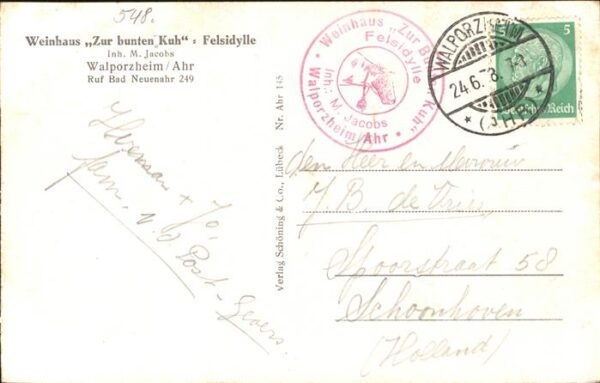 548.
Weinhaus „Zur bunten Kuh" : Felsidylle
Inh. M. Jacobs
Walporzheim/Ahr
Ruf Bad Neuenahr 249
Herman + Jo,
fam. v.d. Post-
Verlag Schöning & Co., Lübeck Nr. Ahr 145
Weinhaus „Zur Kuh"
Felsidylle
Inh: M. Jacobs
Walporzheim/Ahr
WALPORZHEIM
24.6.
5
Deutsches Reich
den Heer en Mevrouw
J. B. de Vries
Spoorstraat 58
Schoonhoven
(Holland)